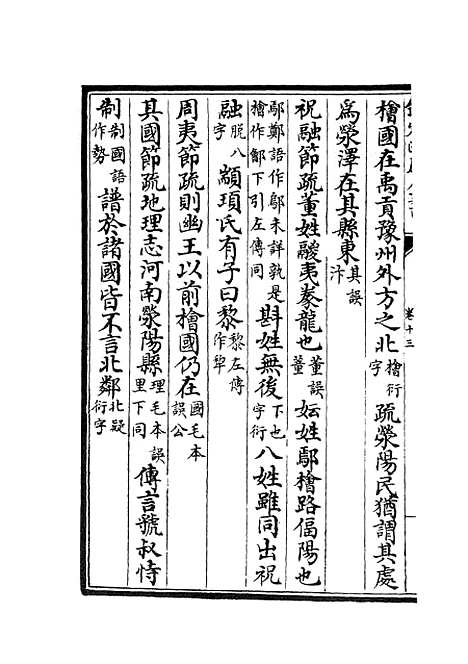 卷十三
檜國在禹貢豫州外方之北檜衍字疏滎陽民猶謂其處
為滎澤在其縣東其誤汴
祝融節疏董姓鬷夷豢龍也董誤董妘姓鄢檜路偪陽也
鄢鄭語作鄔未詳孰是檜作鄶下引左傳同斟姓無後下也字衍八姓雖同出祝
融脱八字顓頊氏有子曰黎黎左傳作犂
周夷節疏則幽王以前檜國仍在國毛本誤公
其國節疏地理志河南滎陽縣理毛本誤里下同傳言虢叔恃
制制國語作勢譜於諸國皆不言北鄰北疑衍字